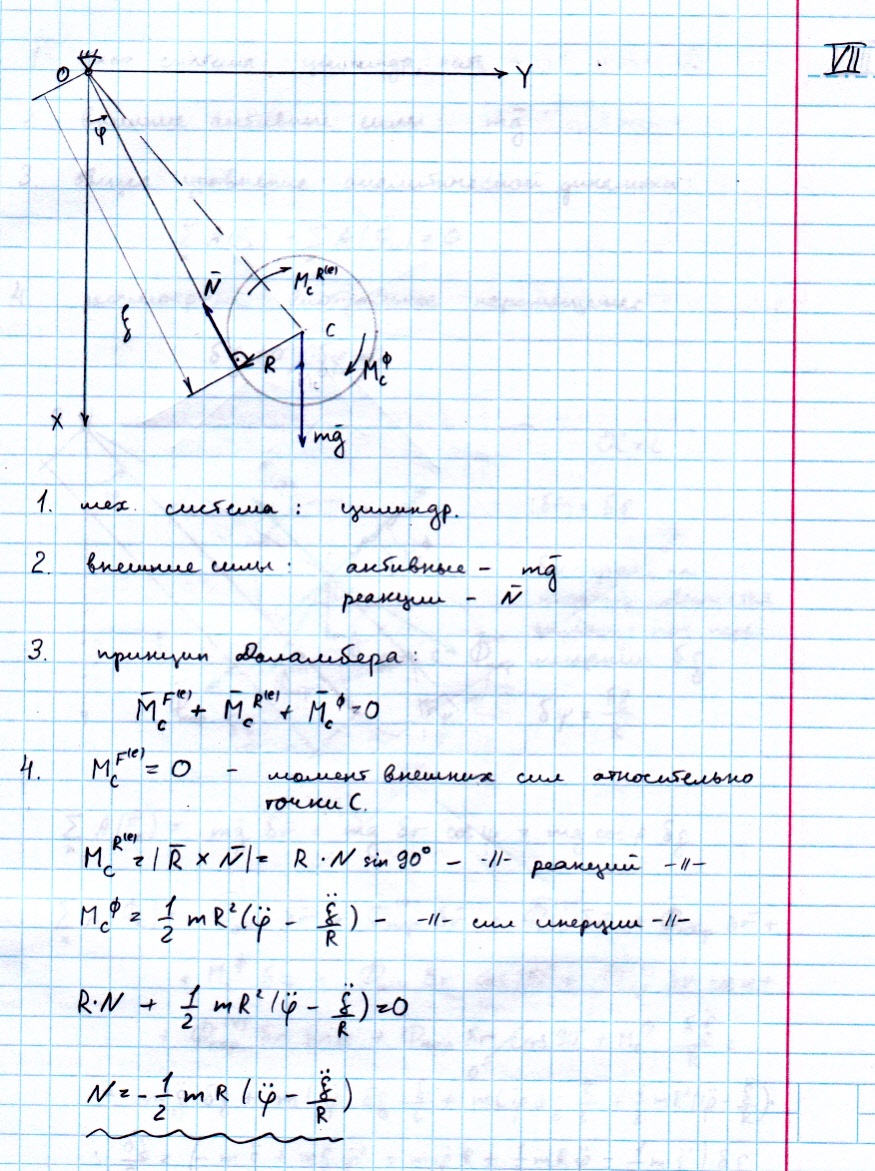 VII
O
Y
φ
N̄
M_C^{R^{(e)}}
ξ
C
R
M_C^Ф
X
mḡ
1. мех. система : цилиндр.
2. внешние силы : активные - mḡ
реакции - N̄
3. принцип Даламбера :
M̄_C^{F^{(e)}} + M̄_C^{R^{(e)}} + M̄_C^Ф = 0
4. M_C^{F^{(e)}} = 0 - момент внешних сил относительно
точки C.
M_C^{R^{(e)}} = |R̄ × N̄| = R · N sin 90° - -||- реакций -||-
M_C^Ф = 1/2 mR²(φ̈ - ξ̈/R) - -||- сил инерции -||-
R·N + 1/2 mR²(φ̈ - ξ̈/R) = 0
N = -1/2 mR(φ̈ - ξ̈/R)